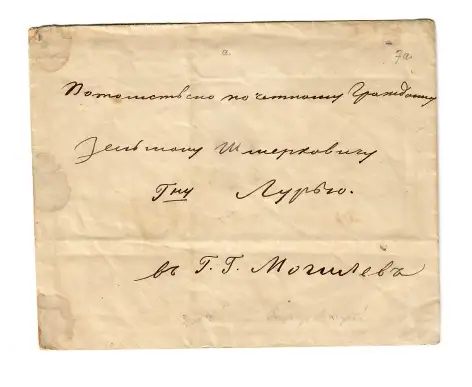 а
7а
Потомствено почетному Гражданину
Зельману Шмерковичу
Гну Лурью.
въ Г. Г. Могилевъ